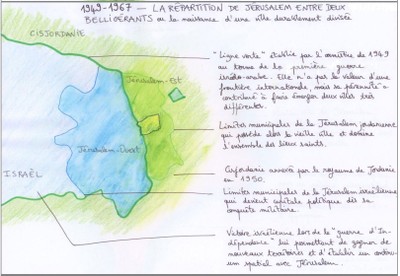 1949-1967 — LA RÉPARTITION DE JÉRUSALEM ENTRE DEUX
BELLIGÉRANTS ou la naissance d'une ville durablement divisée
CISJORDANIE
"Ligne verte" établie par l'armistice de 1949
au terme de la première guerre
israélo-arabe. Elle n'a pas la valeur d'une
frontière internationale, mais sa pérennité a
contribué à faire émerger deux villes très
différentes.
Jérusalem-Est
Limites municipales de la Jérusalem jordanienne
qui possède alors la vieille ville et domine
l'ensemble des lieux saints.
Jérusalem-Ouest
Cisjordanie annexée par le royaume de Jordanie
en 1950.
ISRAËL
Limites municipales de la Jérusalem israélienne
qui devient capitale politique dès sa
conquête militaire.
Victoire israélienne lors de la "guerre d'In-
dépendance" lui permettant de gagner de
nouveaux territoires et d'établir un continu-
um spatial avec Jérusalem.